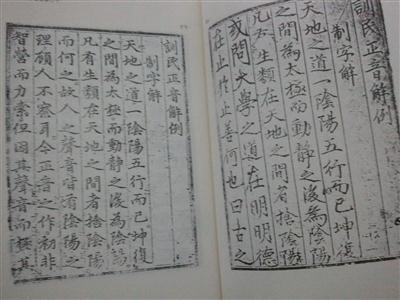 訓民正音解例
制字解
天地之道一陰陽五行而已坤復
之間為太極而動靜之後為陰陽
凡有生類在天地之間者捨陰陽
或問大學之道在明明德
在止於止善何也曰古之
訓民正音解例
制字解
天地之道一陰陽五行而已坤復
之間為太極而動靜之後為陰陽
凡有生類在天地之間者捨陰陽
而何之故人之聲音皆有陰陽之
理顧人不察耳今正音之作初非
智營而力索但因其聲音而極其